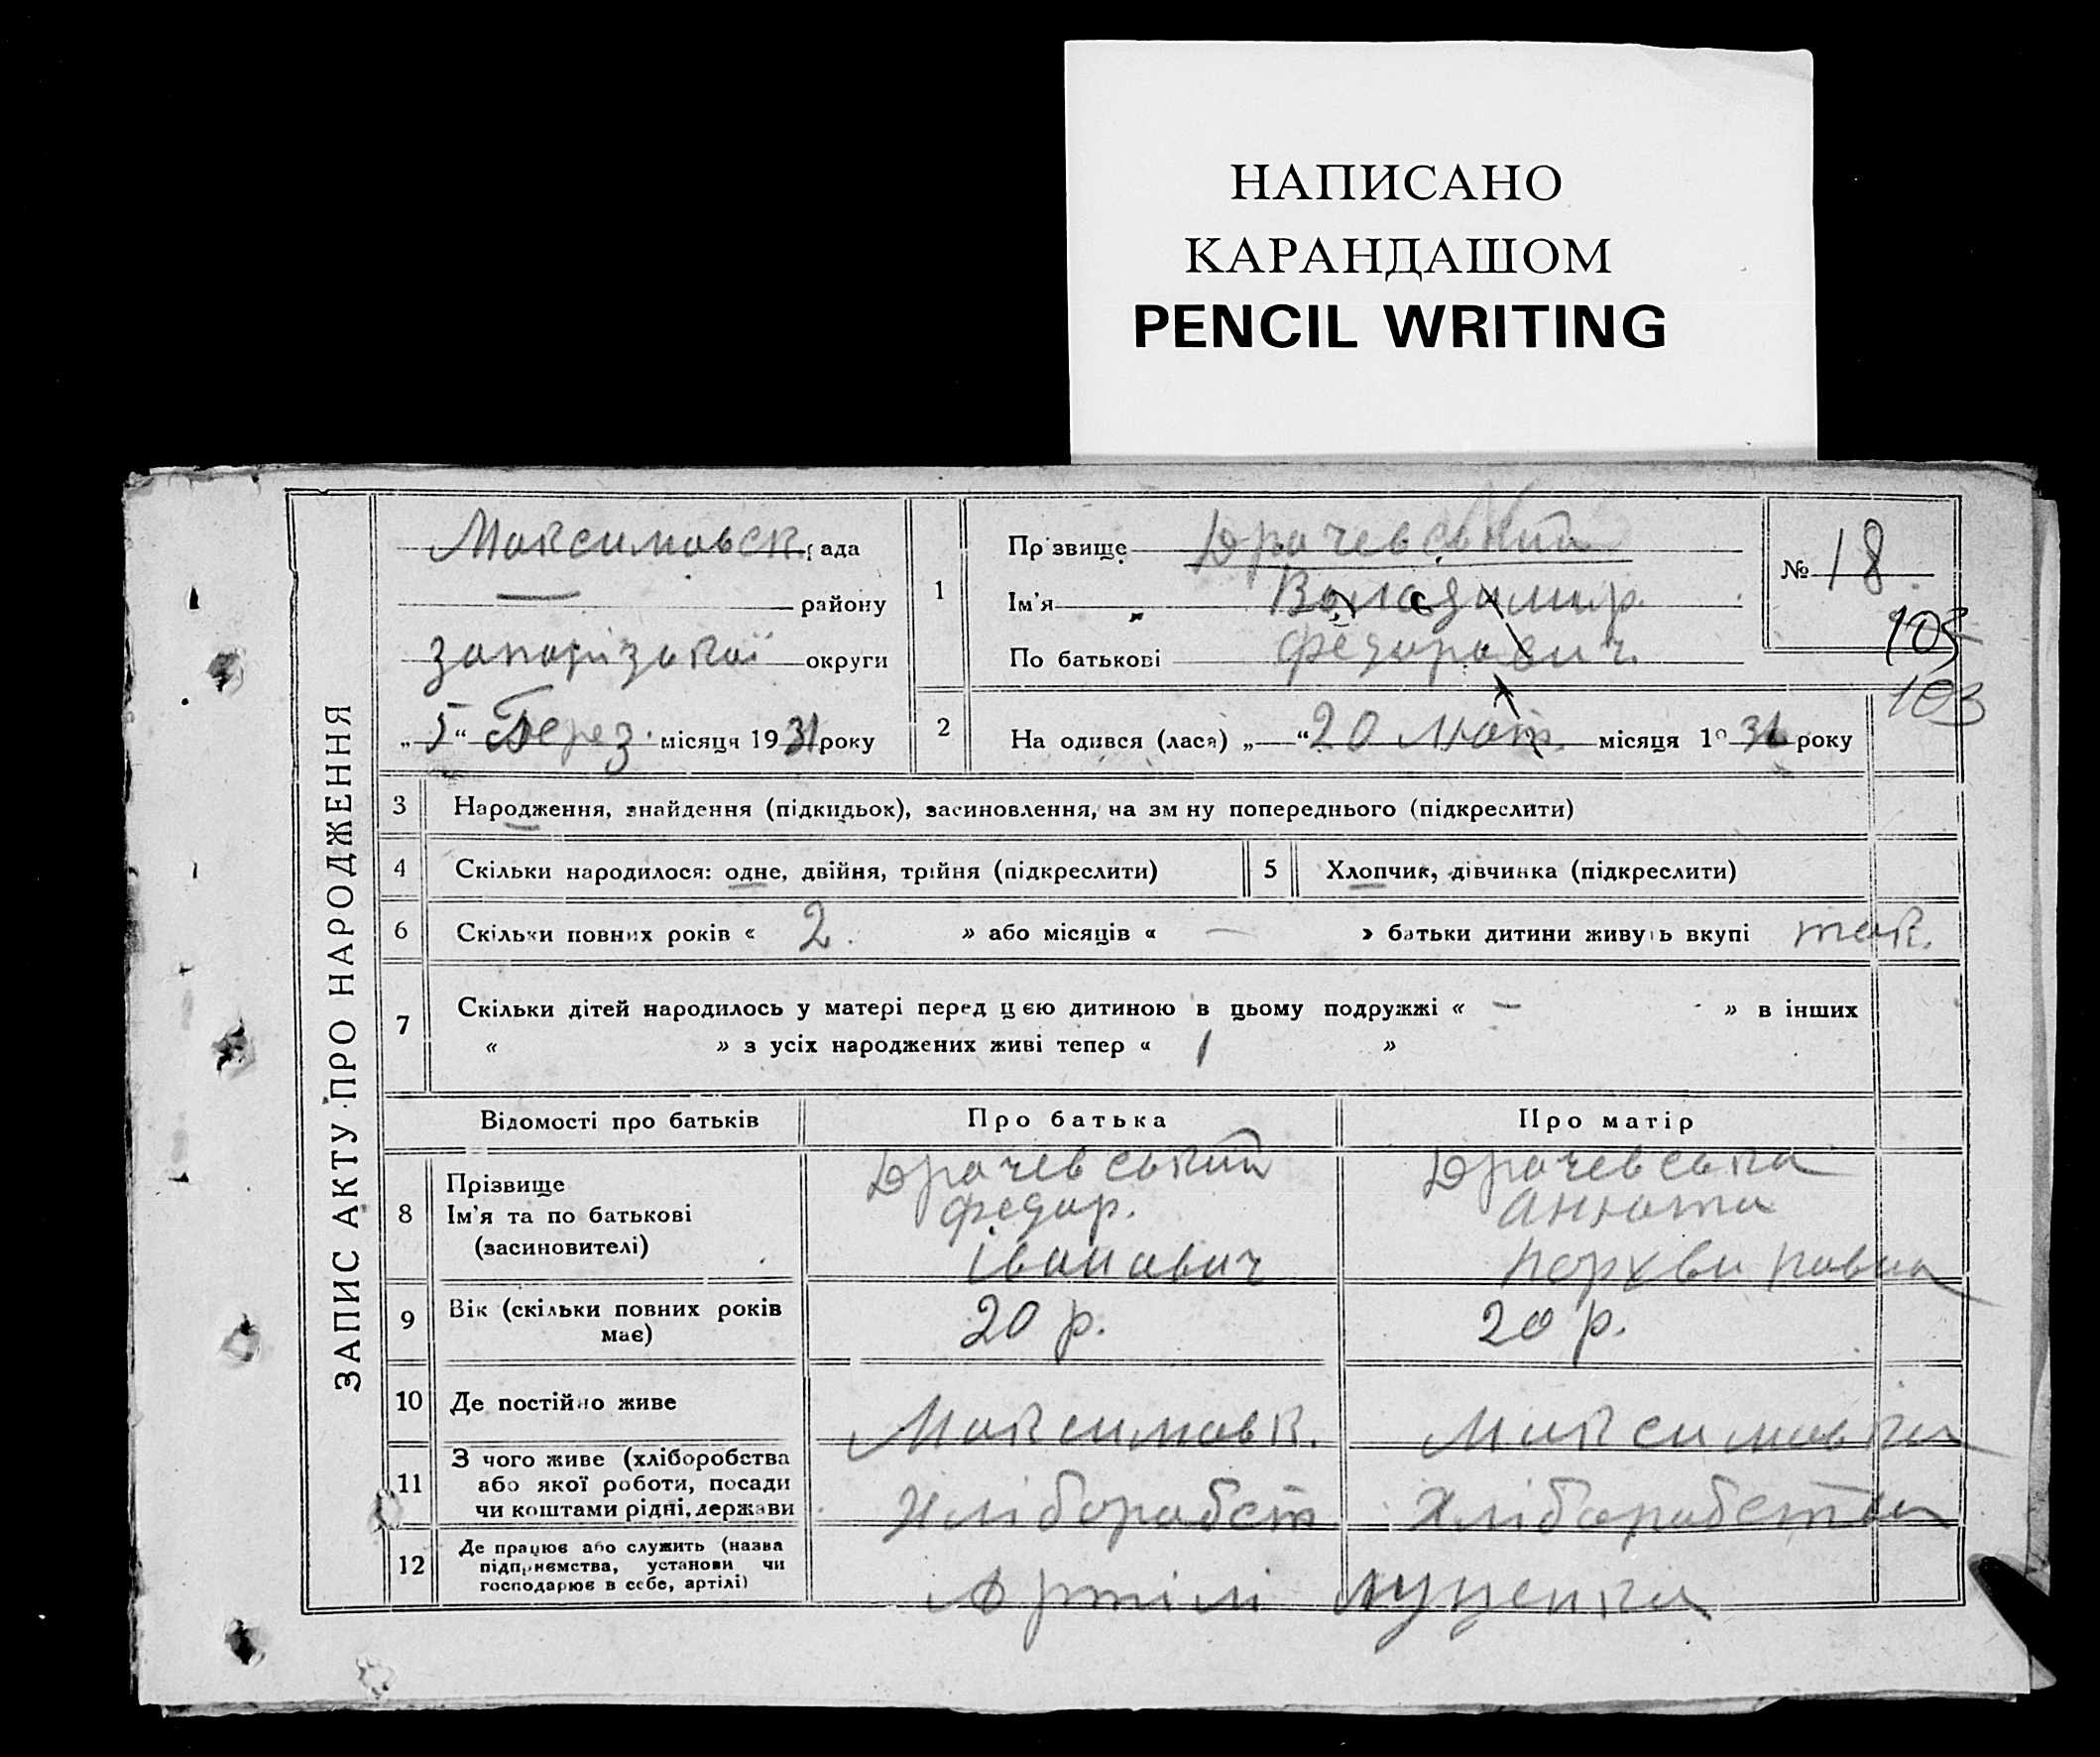 НАПИСАНО
КАРАНДАШОМ
PENCIL WRITING
ЗАПИС АКТУ ПРО НАРОДЖЕННЯ
Максимовск. рада
— району
запорізької округи
„5“ Берез. місяця 1931 року
1
Прізвище Драчевський
Ім'я Владимир.
По батькові Федорович.
№ 18
103
103
2 На одився (лася) „ “ 20 Лют. місяця 1931 року
3 Народження, знайдення (підкидьок), засиновлення, на зм ну попереднього (підкреслити)
4 Скільки народилося: одне, двійня, трійня (підкреслити)
5 Хлопчик, дівчинка (підкреслити)
6 Скільки повних років « 2. » або місяців « — » батьки дитини живуть вкупі так.
7 Скільки дітей народилось у матері перед цією дитиною в цьому подружжі « — » в інших
« » з усіх народжених живі тепер « 1 »
Відомості про батьків Про батька Про матір
8 Прізвище Драчевський Драчевська
Ім'я та по батькові Федор. Анюта
(засиновителі) Іванович
9 Вік (скільки повних років 20 р. 20 р.
має)
10 Де постійно живе Максимовк. Максимовка
11 З чого живе (хліборобства
або якої роботи, посади Хліборобст Хліборобства
чи коштами рідні, держави
12 Де працює або служить (назва
підприємства, установи чи Артілі Луценка
господарює в себе, артілі)